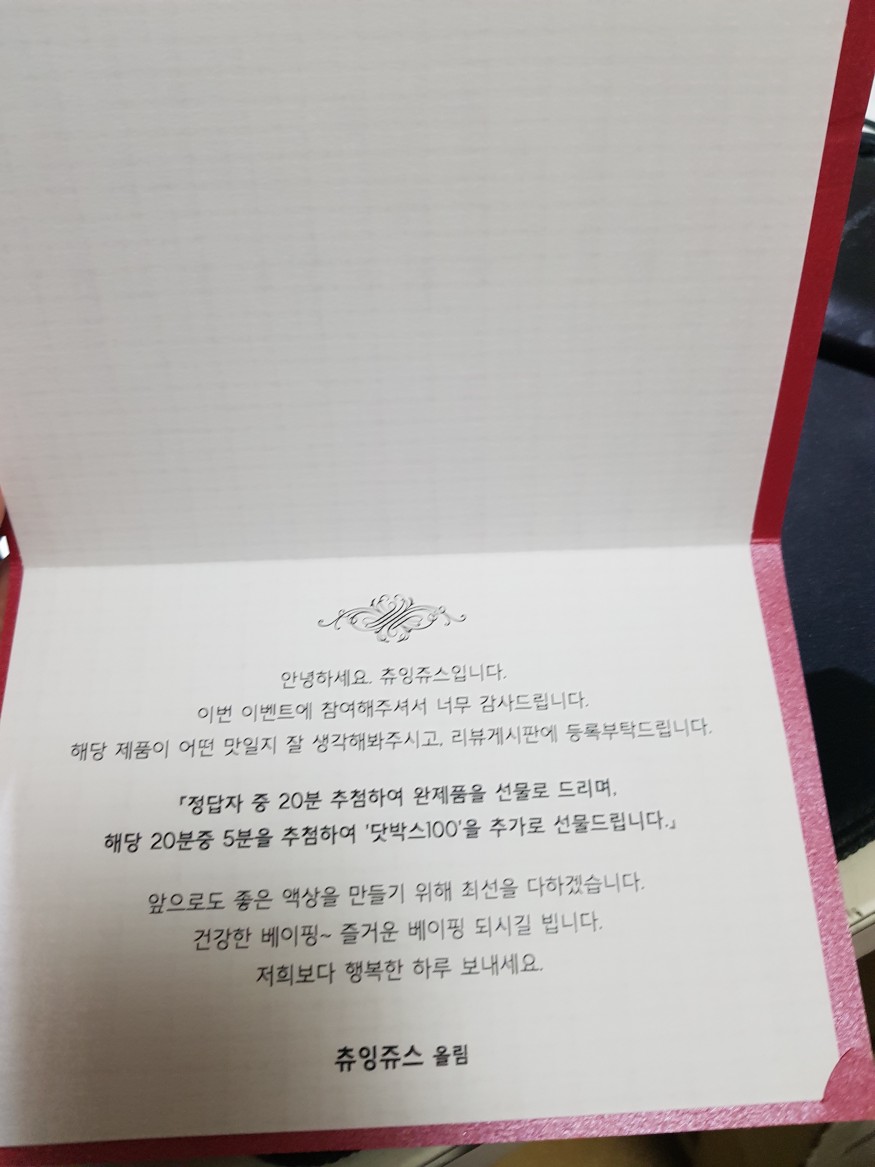 안녕하세요. 츄잉쥬스입니다.
이번 이벤트에 참여해주셔서 너무 감사드립니다.
해당 제품이 어떤 맛일지 잘 생각해봐주시고, 리뷰게시판에 등록부탁드립니다.
「정답자 중 20분 추첨하여 완제품을 선물로 드리며,
해당 20분중 5분을 추첨하여 '닷박스100'을 추가로 선물드립니다.」
앞으로도 좋은 액상을 만들기 위해 최선을 다하겠습니다.
건강한 베이핑~ 즐거운 베이핑 되시길 빕니다.
저희보다 행복한 하루 보내세요.
츄잉쥬스 올림